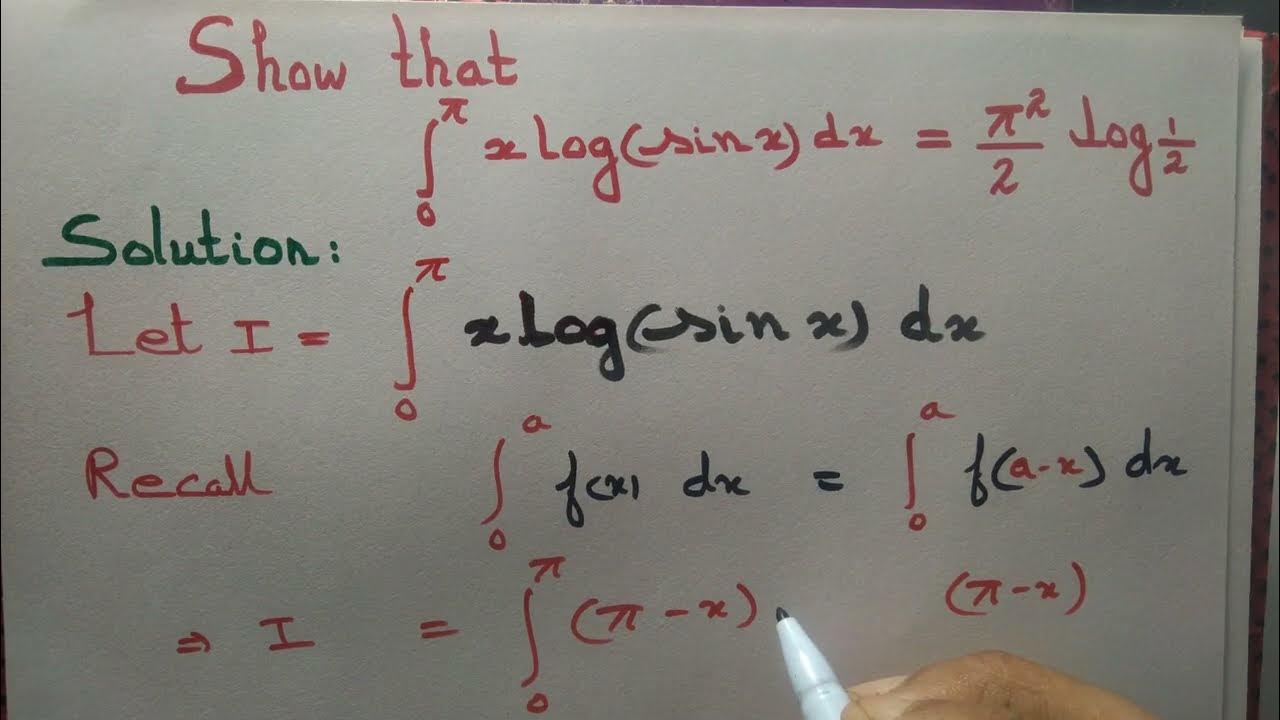 Show that
∫₀^π x log(sin x) dx = π²/2 log 1/2
Solution:
Let I = ∫₀^π x log(sin x) dx
Recall ∫₀^a f(x) dx = ∫₀^a f(a-x) dx
⇒ I = ∫₀^π (π - x) (π - x)